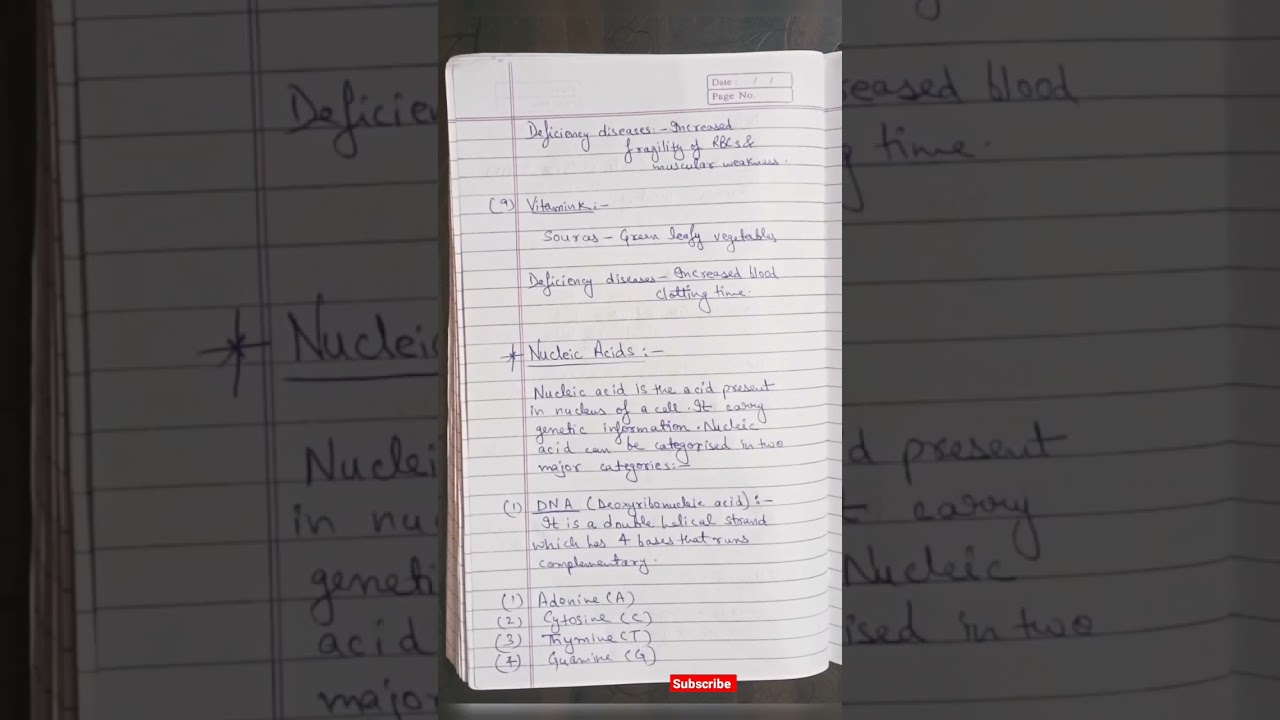 Date : / /
Page No.
Deficiency diseases:- Increased
fragility of RBCs &
muscular weakness.
(9) Vitamin K:-
Sources - Green leafy vegetables
Deficiency diseases - Increased blood
clotting time.
* Nucleic Acids :-
Nucleic acid is the acid present
in nucleus of a cell. It carry
genetic information. Nucleic
acid can be categorised in two
major categories:-
(1) DNA (Deoxyribonucleic acid):-
It is a double helical strand
which has 4 bases that runs
complementary.
(1) Adenine (A)
(2) Cytosine (C)
(3) Thymine (T)
(4) Guanine (G)
Subscribe